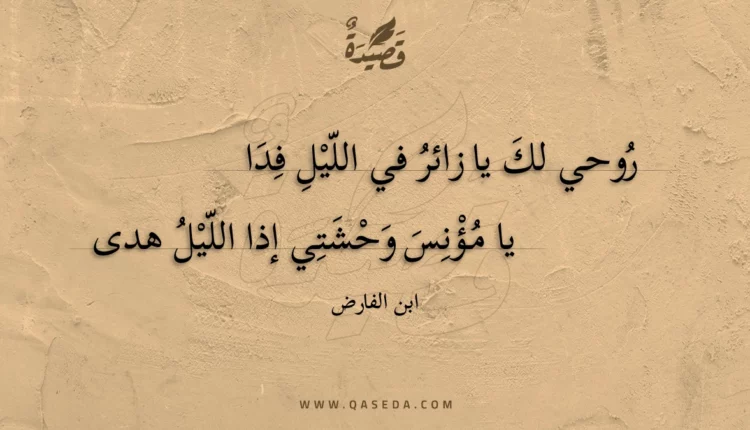 قَصِيْدَةٌ
رُوحي لكَ يا زائرُ في اللّيْلِ فِدَا
يا مُؤْنِسَ وَحْشَتِي إذا اللّيْلُ هدى
ابن الفارض
WWW.QASEDA.COM